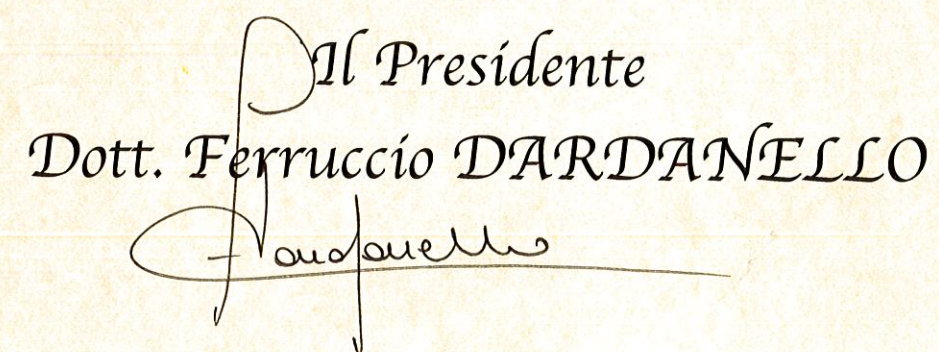 Il Presidente
Dott. Ferruccio DARDANELLO
Dardanello